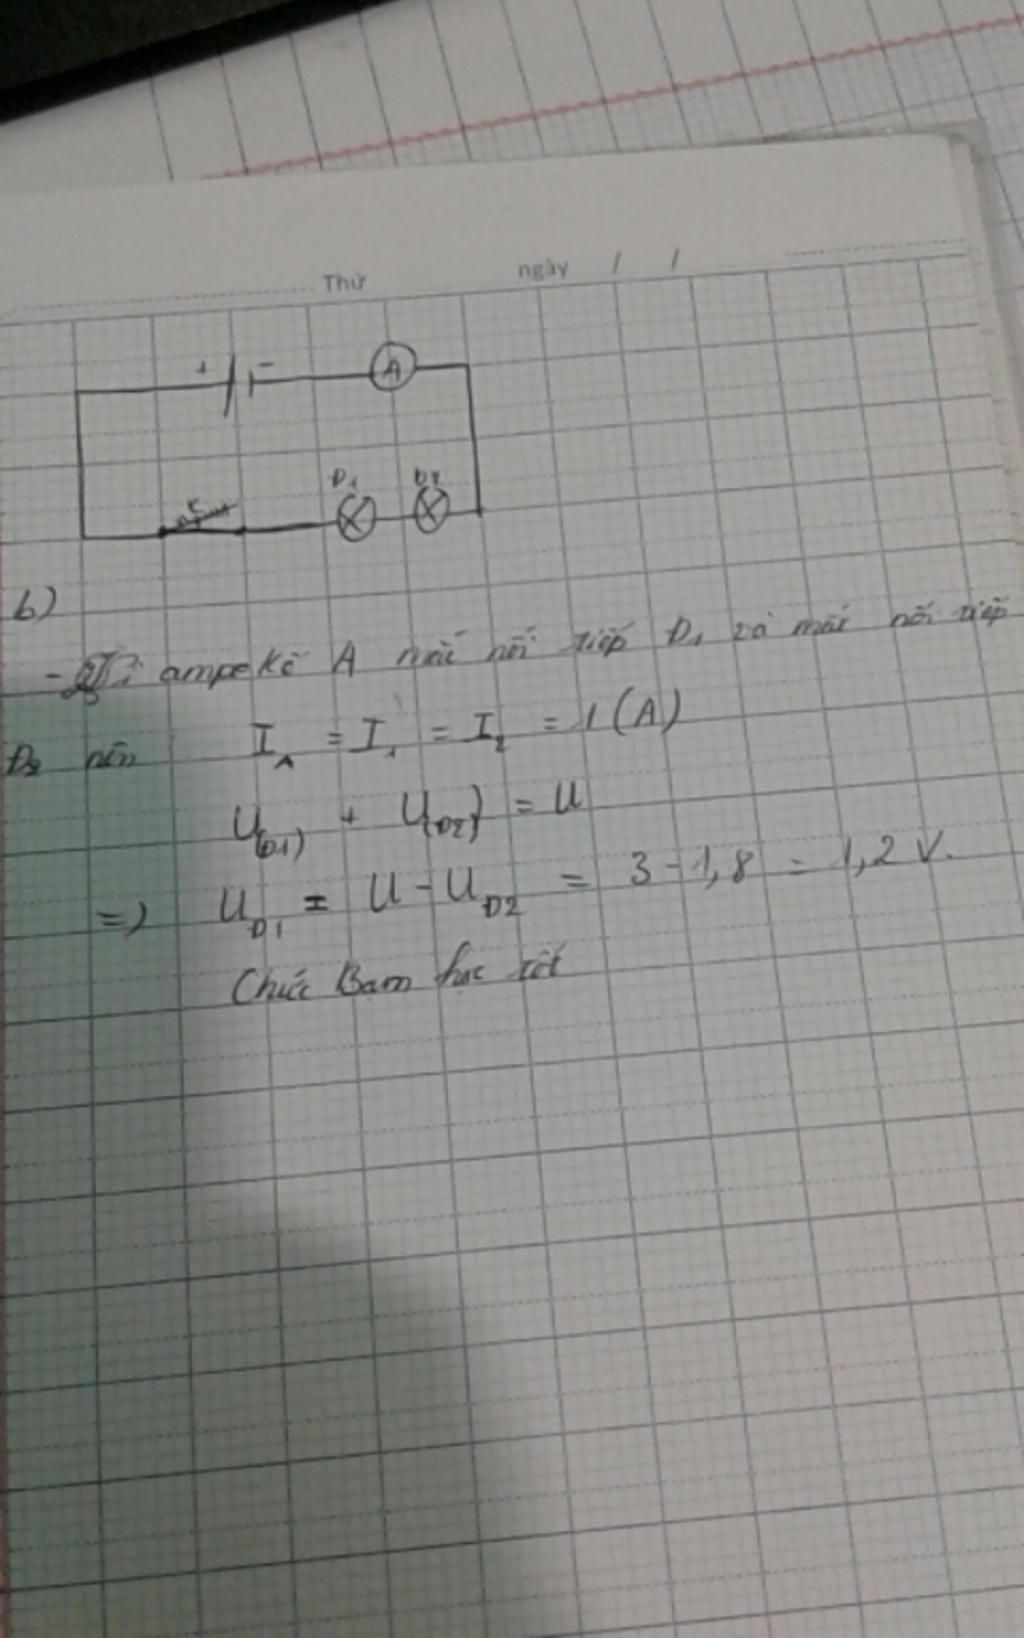 Thứ ngày / /
+ - A
K Đ1 Đ2
b)
- Vì ampe kế A mắc nối tiếp Đ1 và mắc nối tiếp
Đ2 nên I_A = I_1 = I_2 = 1 (A)
U(Đ1) + U(Đ2) = U
=> U_Đ1 = U - U_Đ2 = 3 - 1,8 = 1,2 V.
Chúc Bạn học tốt